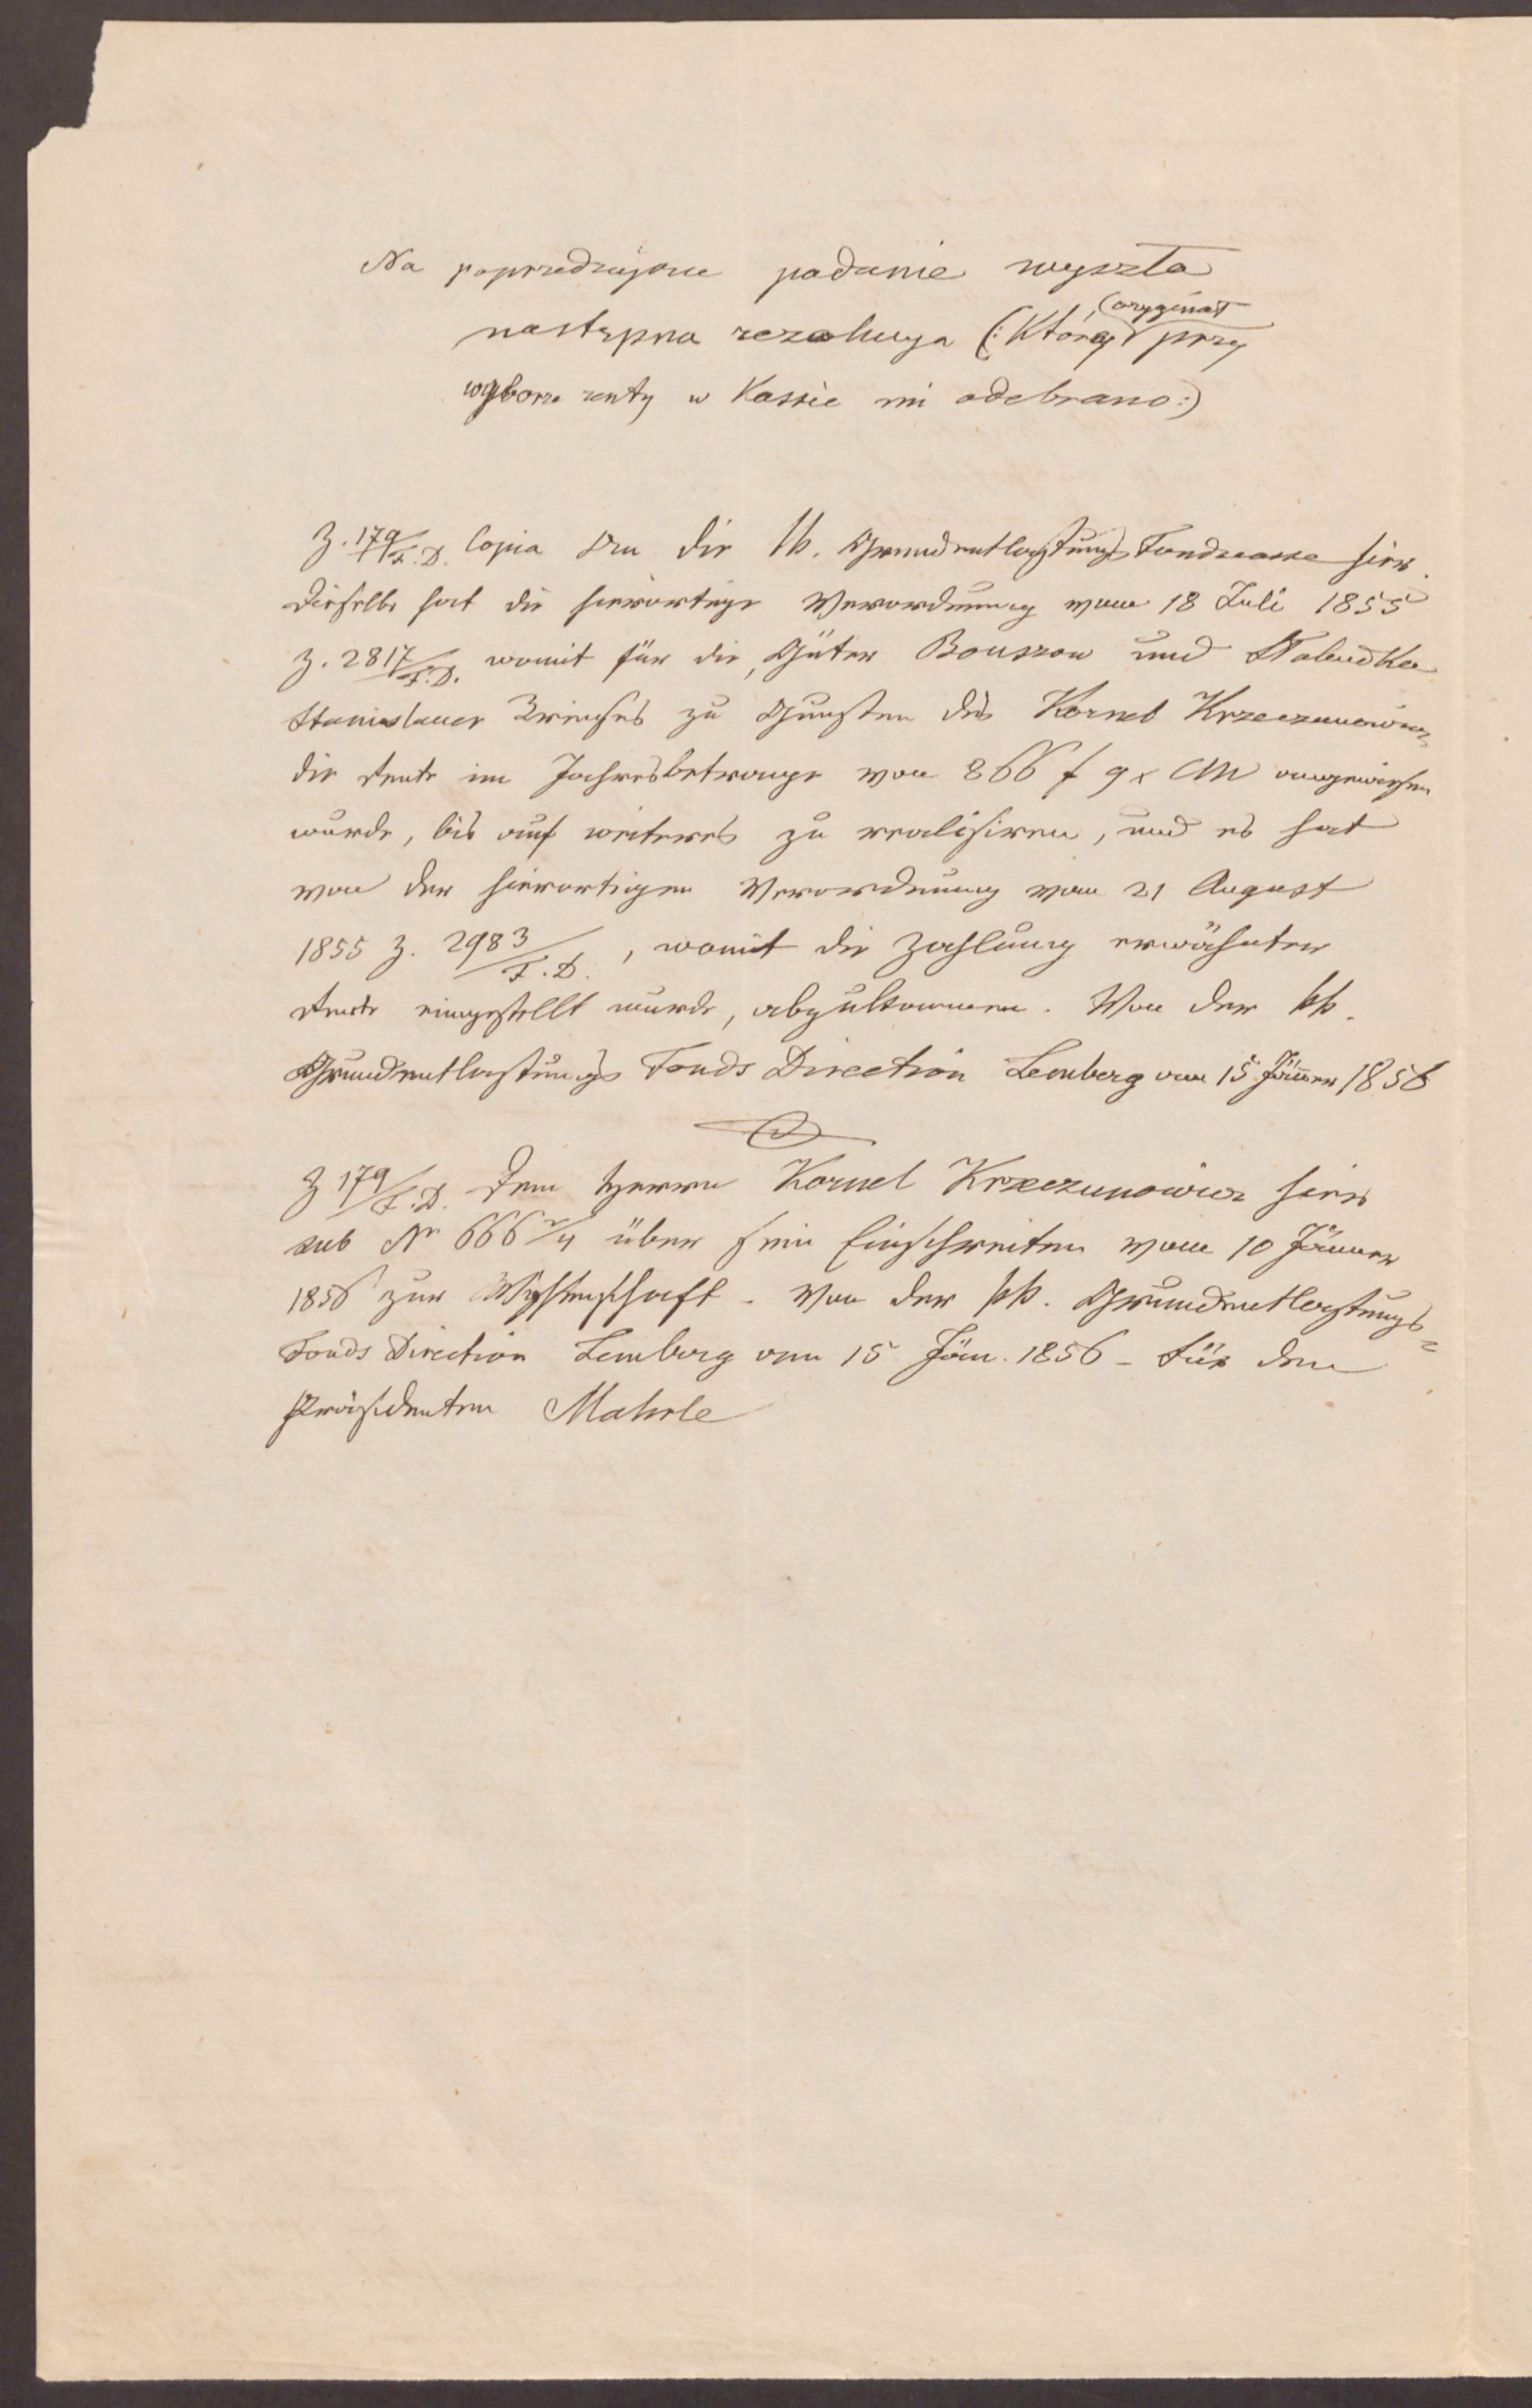 Na poprzedzające podanie wyszła
następna rezolucya (: Której oryginał przy
wyborze renty w Kassie mi odebrano :)
Z. 179/F.D. Copia An die kk. Grundentlastungs Fondscasse hier.
Dieselbe hat die hierortige Verordnung vom 18 Juli 1855
Z. 2817/F.D. womit für die Güter Bouszow und
Stanislauer Kreises zu Gunsten des Kornel Krzeczunowicz
die Rente im Jahresbetrage von 866 f 9 x CM angewiesen
wurde, bis auf weiteres zu realisiren, und es hat
von der hierortigen Verordnung vom 21 August
1855 Z. 2983/F.D., womit die Zahlung erwähnter
Rente eingestellt wurde, abzukommen. Von der kk.
Grundentlastungs Fonds Direction Lemberg am 15 Jänner 1856
Z 179/F.D. Dem Herrn Kornel Krzeczunowicz hier
sub Nr 666 2/4 über sein Einschreiten vom 10 Jänner
1856 zur Wissenschaft. Von der kk. Grundentlastungs=
Fonds Direction Lemberg am 15 Jän. 1856 - Für den
Präsidenten Mahrle